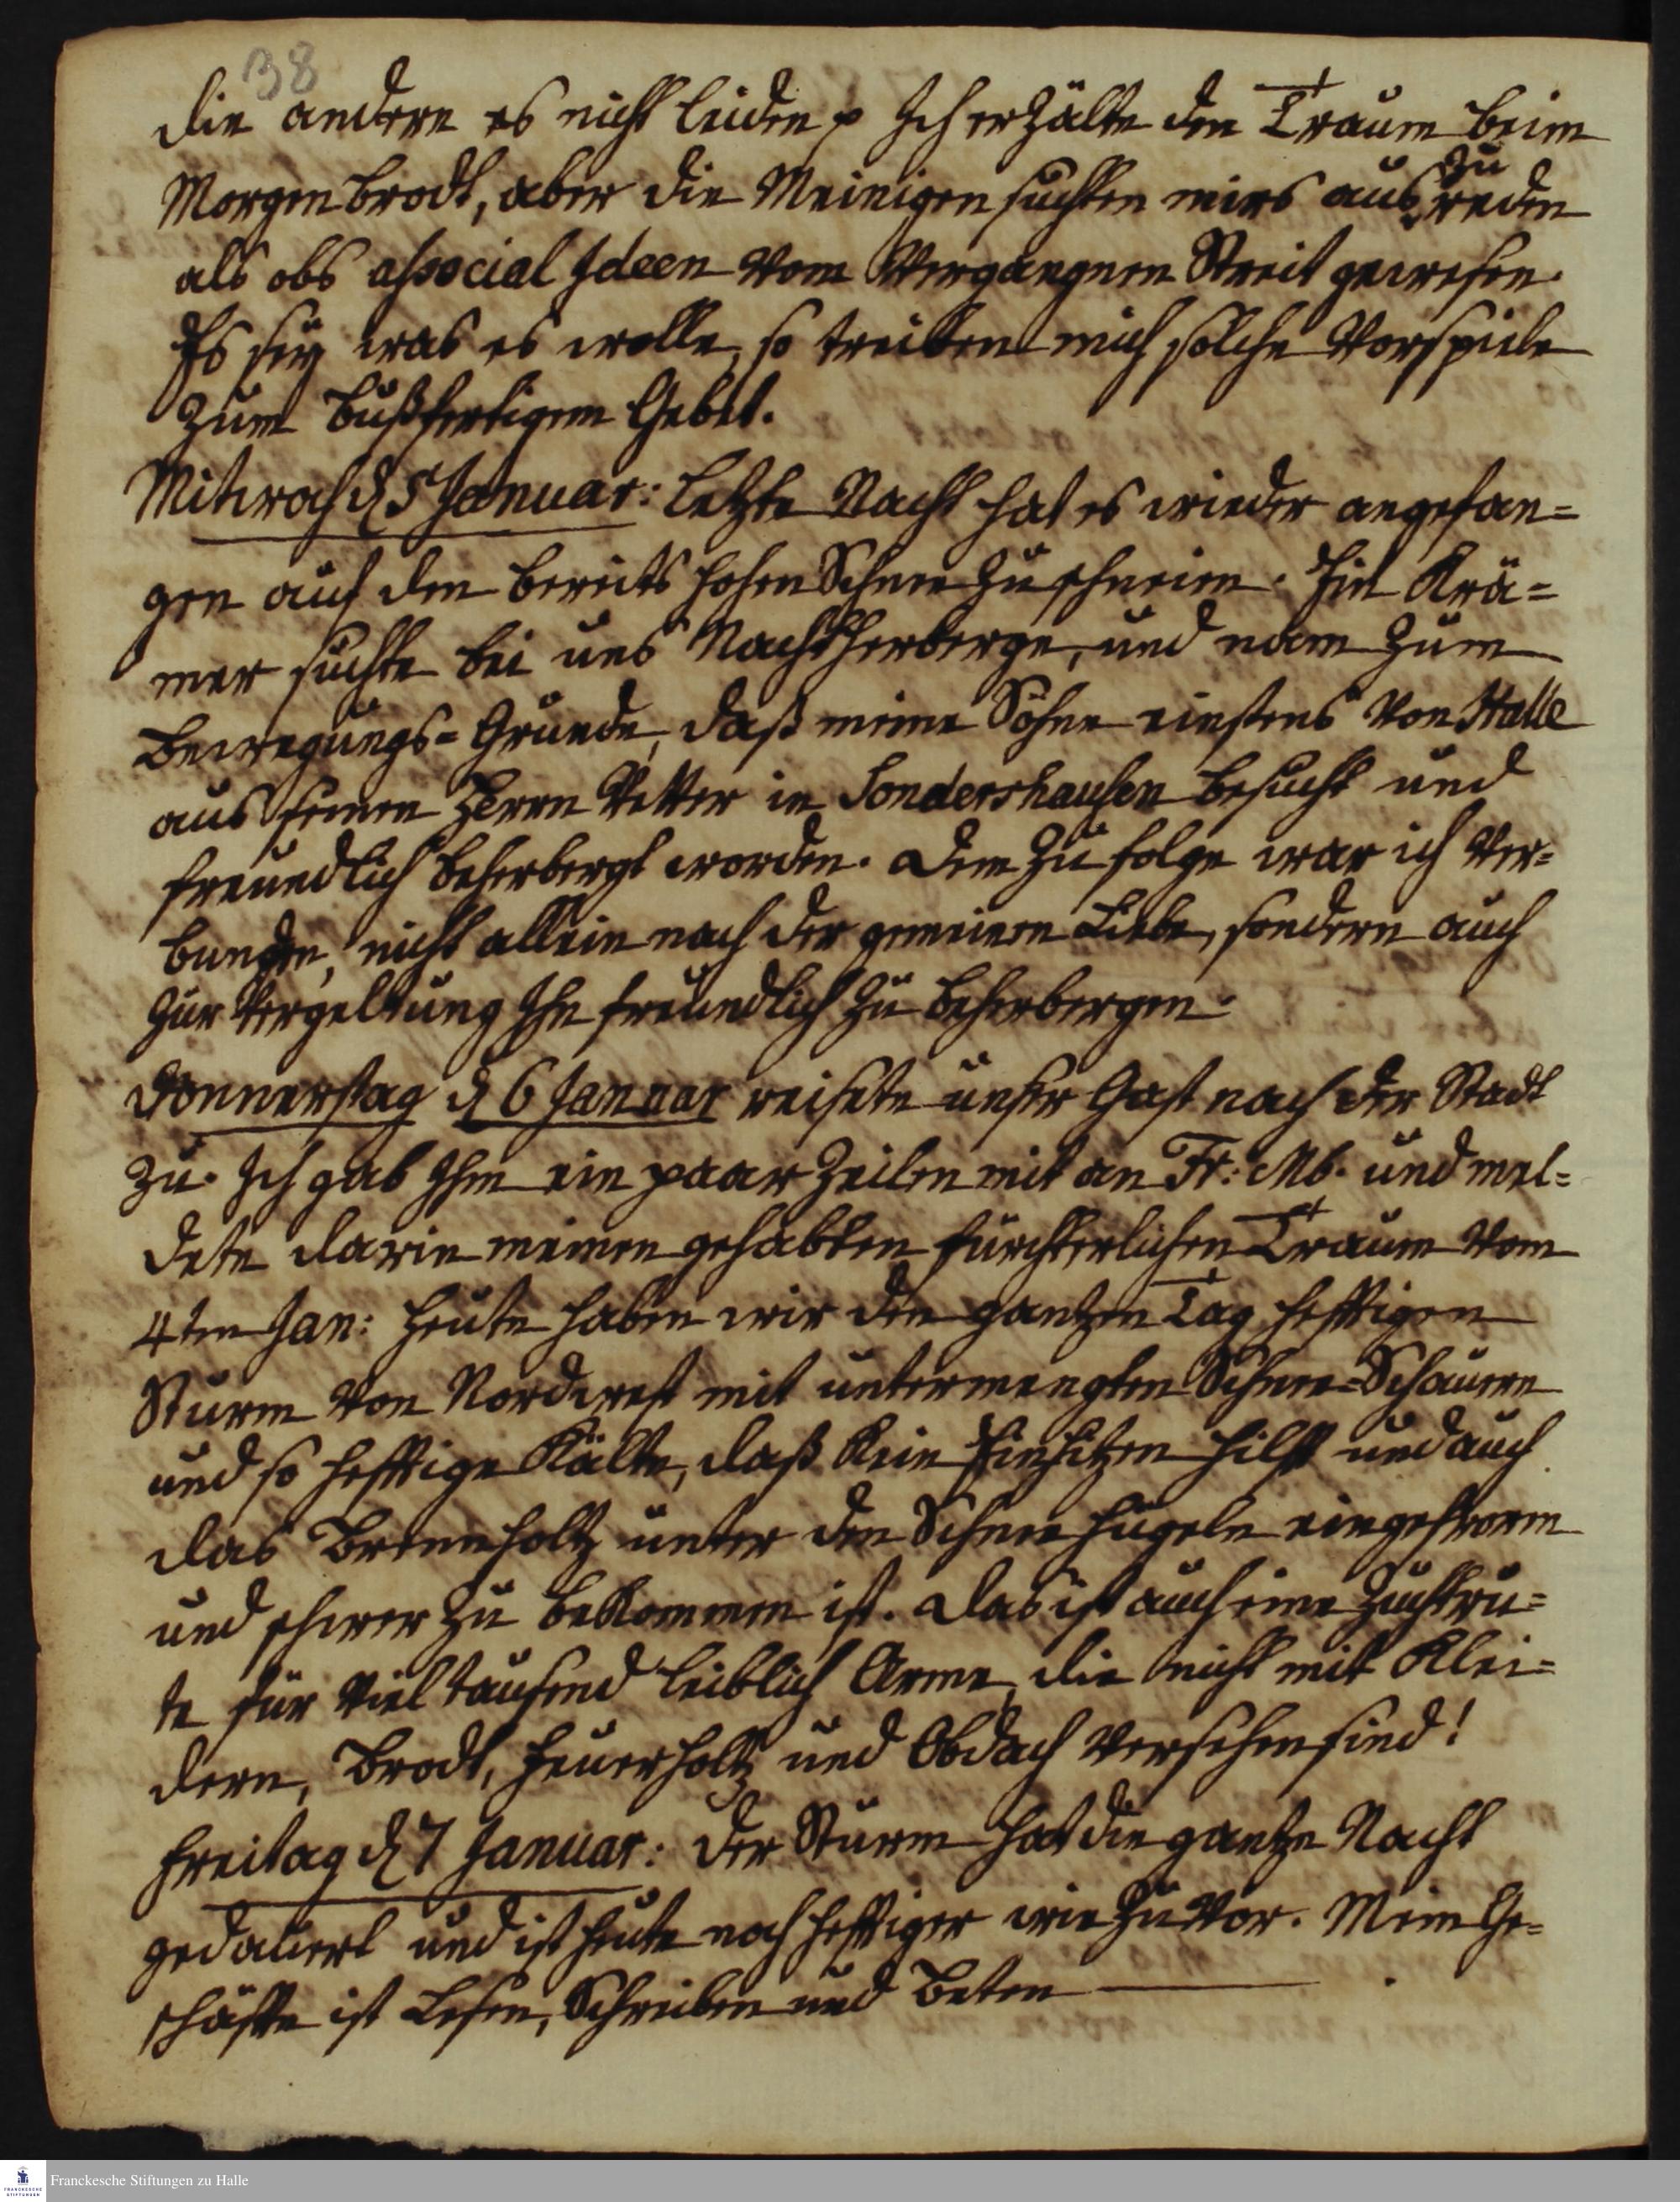 38
die andern es nicht leiden p Ich erzälte den Traum beim
zu
Morgenbrodt, aber die Meinigen suchten mirs aus reden
als obs associal Ideen vom vergangnen Streit gewesen.
Es sey was es wolle, so treiben mich solche Vorspiele
zum bußfertigem Gebet.
Mitwoch d 5 Januar: letzte Nacht hat es wieder angefan=
gen auf den bereits hohen Schnee zu schneien. Ein Krä=
mer suchte bei uns Nachtherberge, und nam zum
Bewegungs=Grunde, daß meine Söhne einstens von Halle
aus seinen Herrn Vetter in Sondershausen besucht und
freundlich beherbergt worden. Dem zu folge war ich ver=
bunden, nicht allein nach der gemeinen Liebe, sondern auch
zur Vergeltung Ihn freundlich zu beherbergen.
Donnerstag d 6 Januar reisete unser Gast nach der Stadt
zu. Ich gab Ihm ein paar Zeilen mit an Fr: Mb. und mel=
dete darin meinen gehabten fürchterlichen Traum vom
4ten Jan: heute haben wir den gantzen Tag hefftigen
Sturm von Nordwest mit untermengten Schnee=Schauern
und so hefftige Kälte, daß kein Einhitzen hilfft und auch
das Brennholtz unter den Schnee hügeln eingefrorn
und schwer zu bekommen ist. Das ist auch eine Zuchtru=
te für viel tausend leiblich Arme, die nicht mit Klei=
dern, Brodt, Feuerholtz und Obdach versehen sind!
Freitag d 7 Januar: der Sturm hat die gantze Nacht
gedauert und ist heute noch hefftiger wie zuvor. Mein Ge=
schäffte ist Lesen, Schreiben und Beten.
Franckesche Stiftungen zu Halle